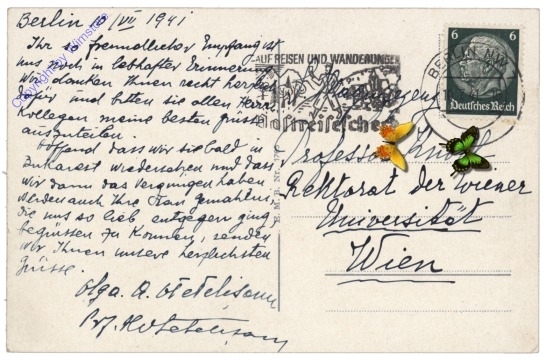 Berlin 6/VII 1941
Ihr so freundlicher Empfang ist
uns noch in lebhafter Erinnerung
Wir danken Ihnen recht herzlich
dafür und bitten sie allen Herrn
Kollegen meine besten grüsse
auszuteilen.
Hoffend dass wir sie bald in
Bukarest wiedersehen und dass
wir dann das Vergnungen haben
werden auch Ihre Frau gemahlin,
die uns so lieb entgegen ging,
begrüssen zu konnen, senden
wir Ihnen unsere herzlichsten
grüsse.
Olga A.
Prof.
Copyright by Filmstoria
AUF REISEN UND WANDERUNGEN
BERLIN NW
6 6
Deutsches Reich
Professor
Rektorat der Wiener
Universität
Wien